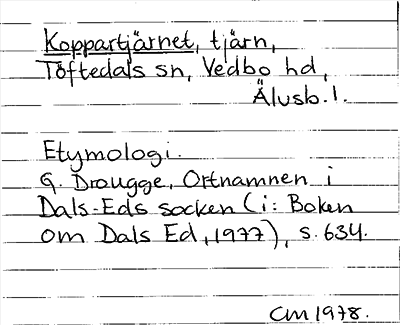 Koppartjärnet, tjärn,
Töftedals sn, Vedbo hd,
Älvsb. l.
Etymologi.
G. Drougge, Ortnamnen i
Dals-Eds socken (i: Boken
om Dals Ed, 1977), s. 634.
CM 1978.